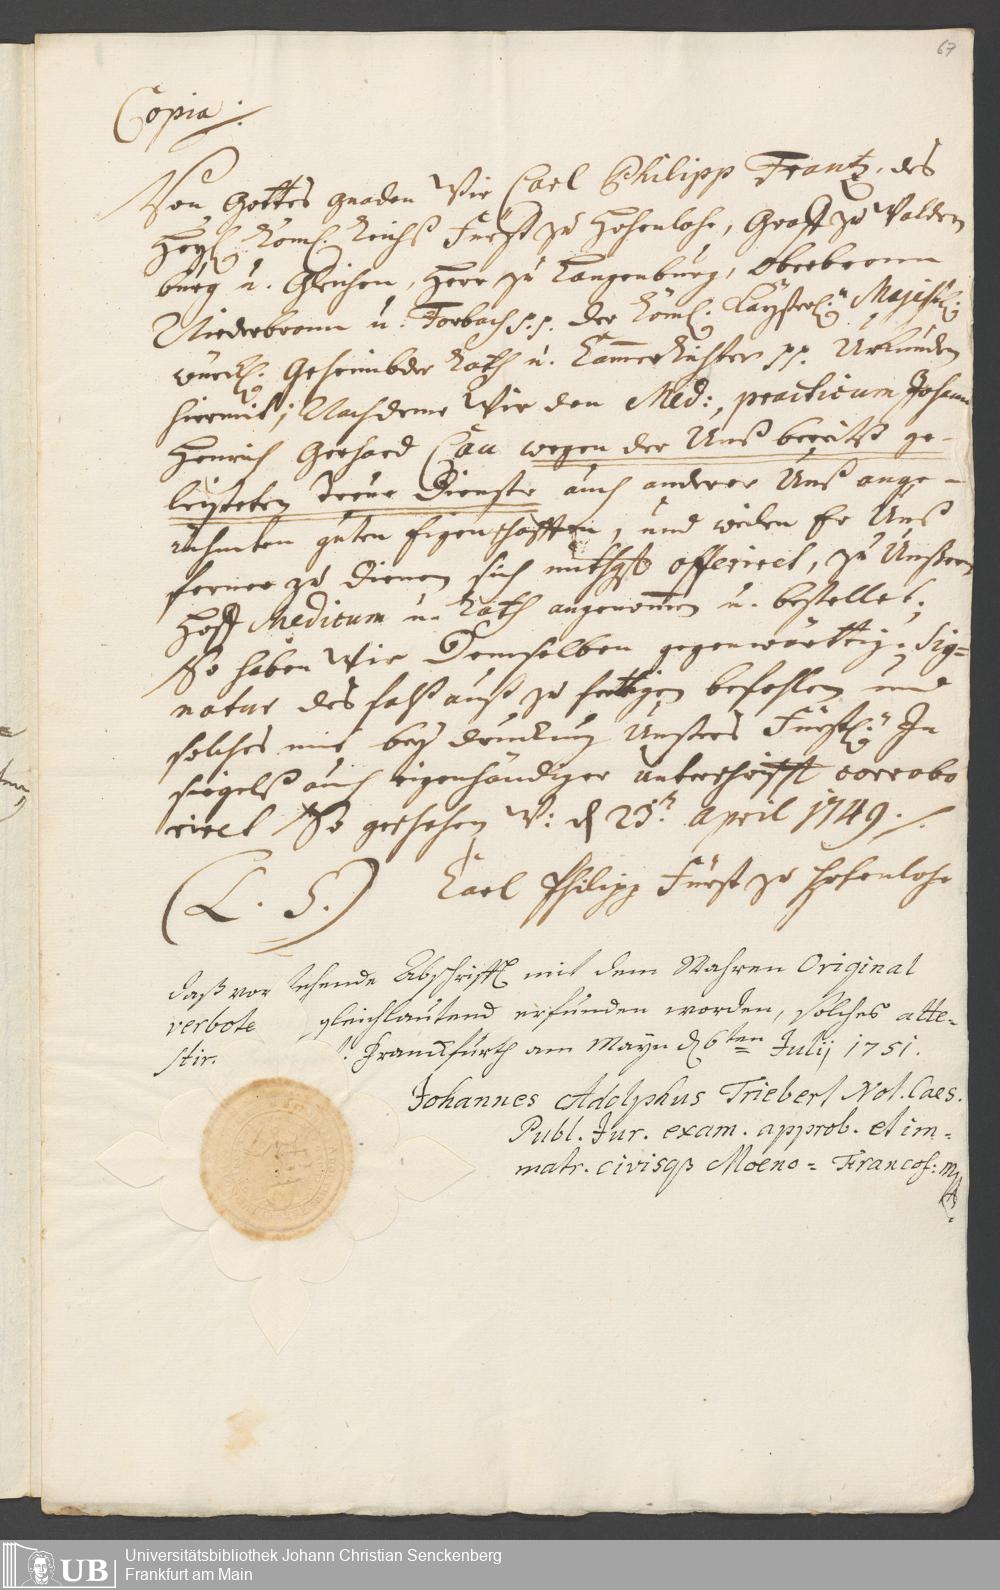 67
Copia:
Von Gottes gnaden Wir Carl Philipp Frantz, des
Heyl. Röml. Reichs Fürst zu Hohenlohe, Graff zu Walden
burg u. Gleichen, Herr zu Langenburg, Oberbronn
Niederbronn u. Forbach p. p. der Röml. Kayserl. Majestät
würckl. Geheimbder Rath u. Cammer Richter pp. Urkunden
hiermit; Nachdeme Wir den Med:, practicum Johann
Henrich Gerhard Cau wegen der Unß bereitß ge-
leysteten treue Dienste auch anderer Unß ange-
rühmten guten Eigenschafften, und weilen Er Unß
ferner zu dienen sich offeriret, zu Unßern
Hoff Medicum u. Rath angenommen u. bestellet;
So haben Wir Demselben gegenwärttig: Sig=
natur des falß auß zu fertigen befohlen und
solches mit bey druckung Unsers Fürstl: In
siegelß auch eigenhändiger unterschrifft corrobo
riret So geschehen W: d 23t. April 1749.
(L. S.) Carl Philipp Fürst zu Hohenlohe
daß vor stehende Abschrifft mit dem Wahren Original
verbote gleichlautend erfunden worden, solches atte-
stir. Franckfurth am Mayn d 6ten Julij 1751.
Johannes Adolphus Triebert Not. Caes.
Publ. Jur. exam. approb. et im-
matr. civisqβ Moeno = Francof: mp
UB
Universitätsbibliothek Johann Christian Senckenberg
Frankfurt am Main